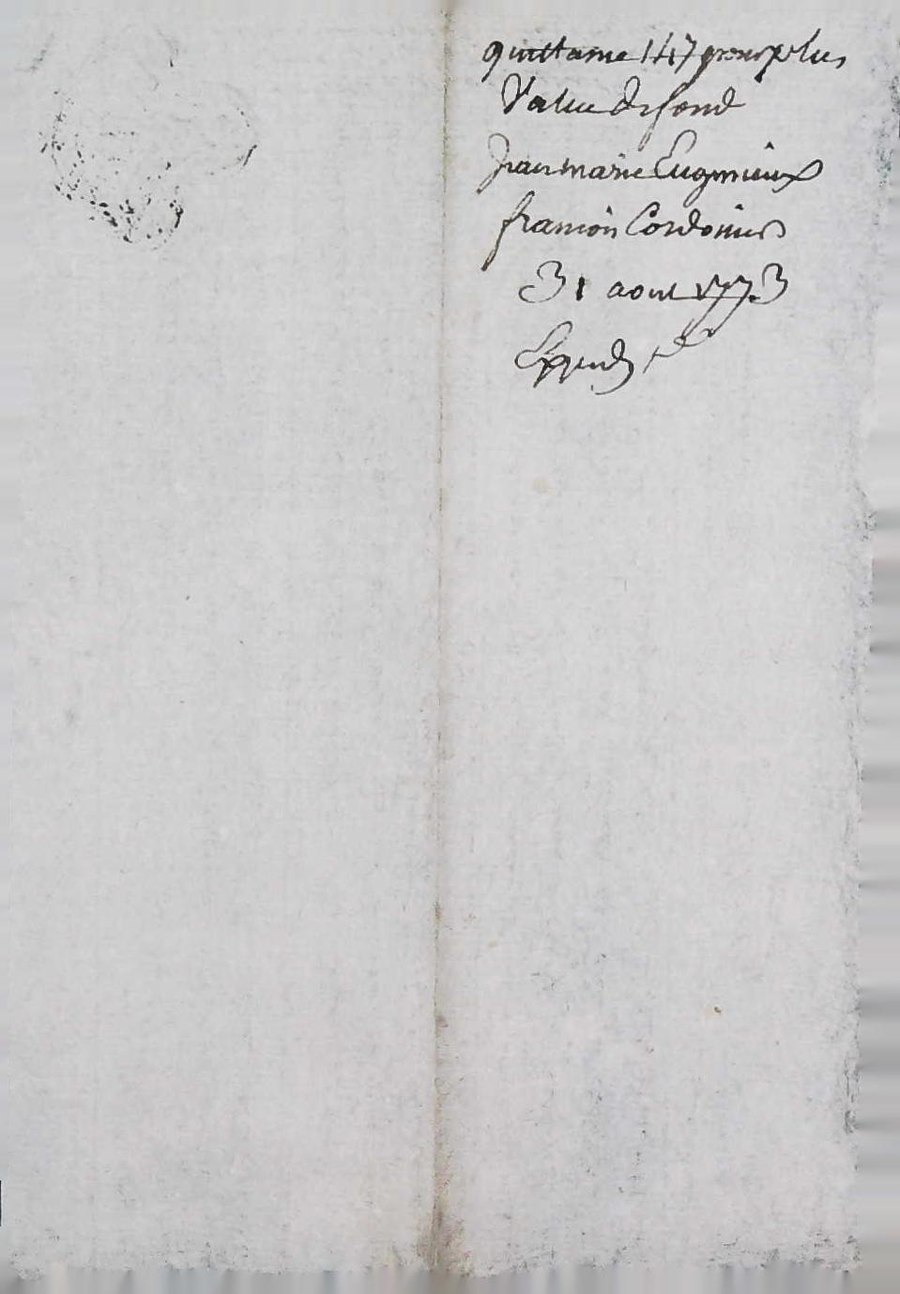 quittance 147 pour plus
Value de fond
Jean marie Eugenieux
francois Cordonier
31 aout 1773
Expend